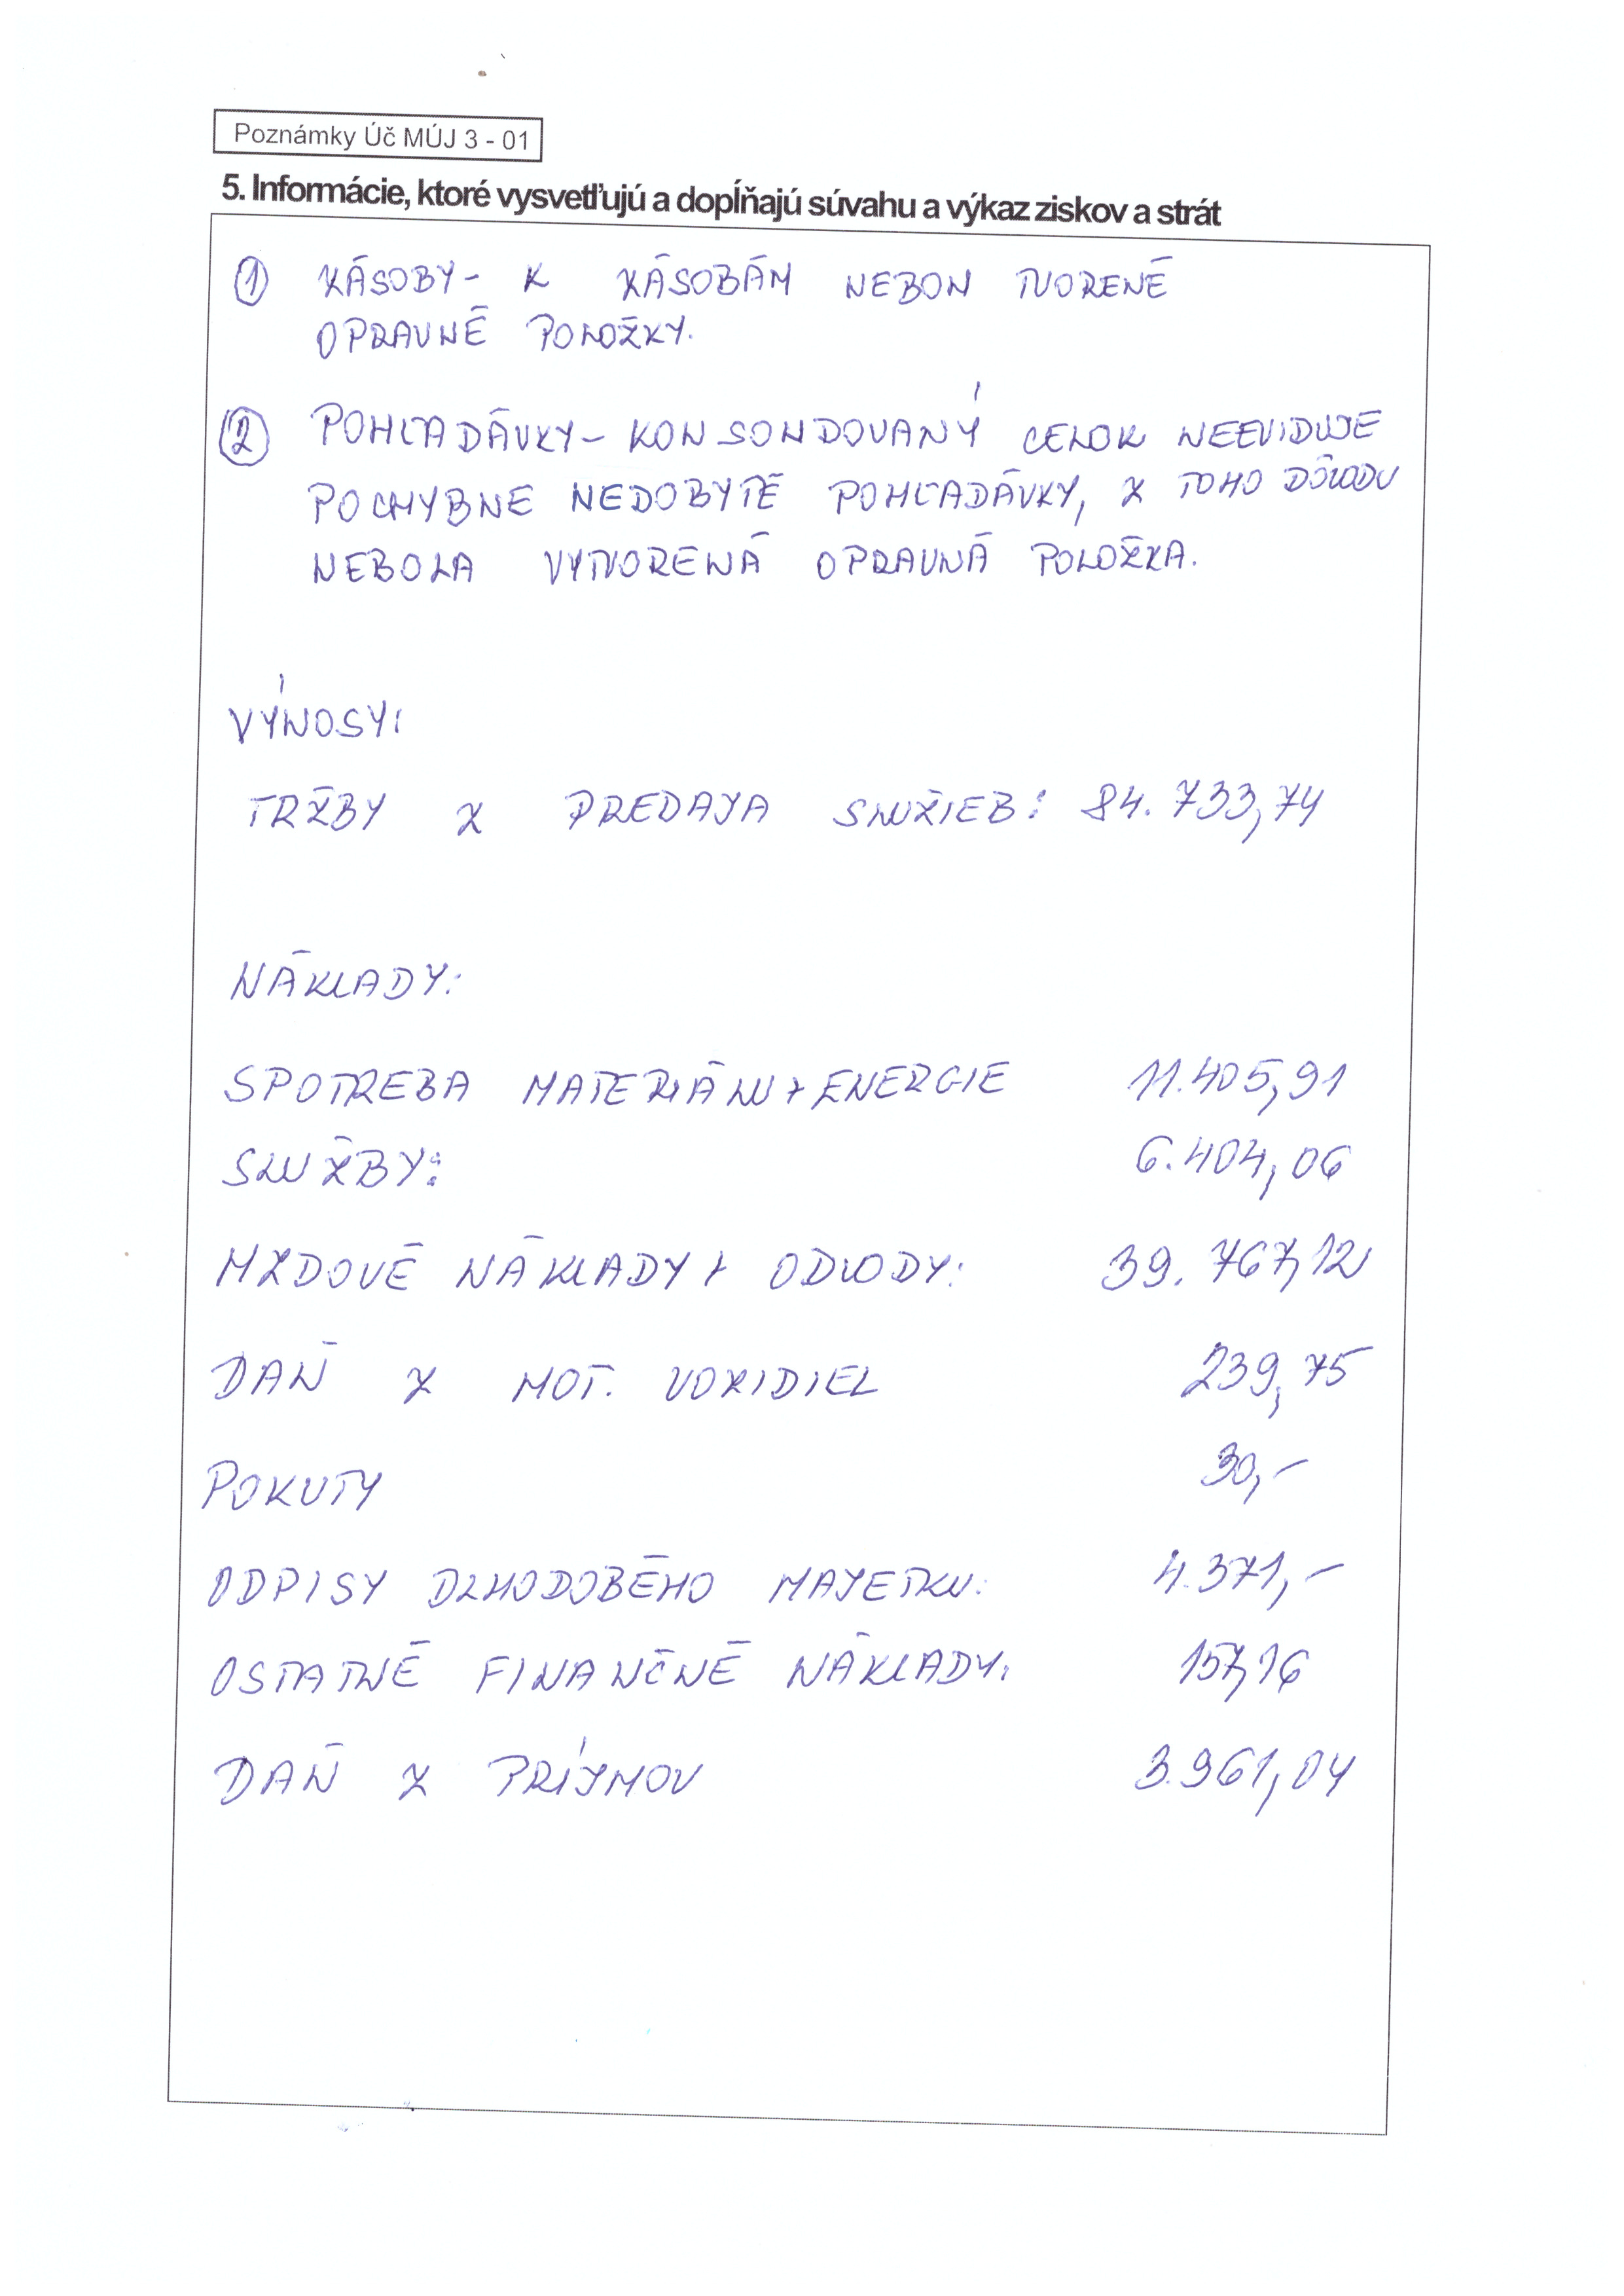 Poznámky Úč MÚJ 3 - 01
5. Informácie, ktoré vysvetľujú a dopĺňajú súvahu a výkaz ziskov a strát
① ZÁSOBY - K ZÁSOBÁM NEBOLI TVORENÉ
OPRAVNÉ POLOŽKY.
② POHĽADÁVKY - KONSOLIDOVANÝ CELOK NEEVIDUJE
POCHYBNE NEDOBYTÉ POHĽADÁVKY, Z TOHO DÔVODU
NEBOLA VYTVORENÁ OPRAVNÁ POLOŽKA.
VÝNOSY:
TRŽBY Z PREDAJA SLUŽIEB: 84.733,74
NÁKLADY:
SPOTREBA MATERIÁLU + ENERGIE 11.405,91
SLUŽBY: 6.404,06
MZDOVÉ NÁKLADY + ODVODY: 39.767,12
DAŇ Z MOT. VOZIDIEL 239,75
POKUTY 30,-
ODPISY DLHODOBÉHO MAJETKU: 4.371,-
OSTATNÉ FINANČNÉ NÁKLADY: 157,16
DAŇ Z PRÍJMOV 3.961,04